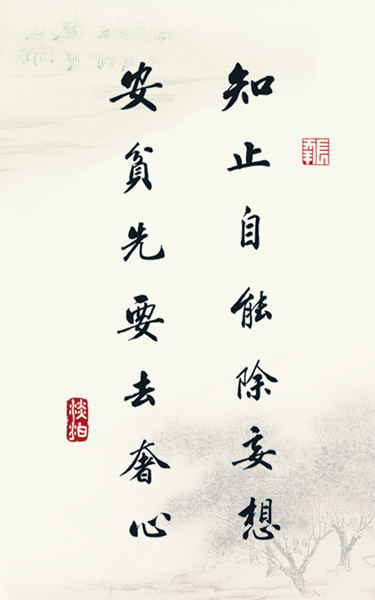 知止自能除妄想
安貧先要去奢心
淡泊